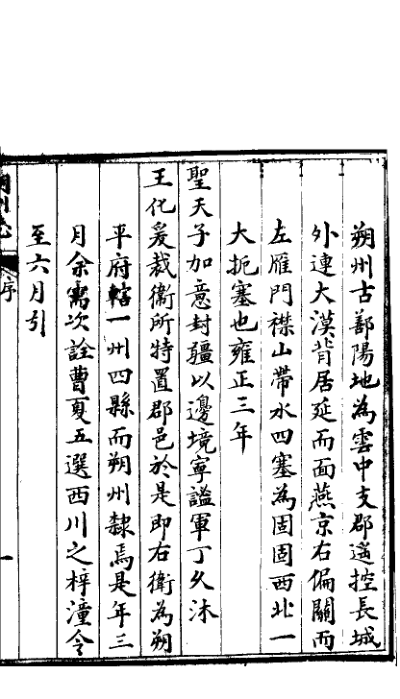 朔州古鄯陽地為雲中支郡遥控長城
外連大漠背居延而面燕京右偏關而
左雁門襟山帶水四塞為固固西北一
大扼塞也雍正三年
聖天子加意封疆以邊境寧謐軍丁久沐
王化爰裁衞所特置郡邑於是即右衞為朔
平府轄一州四縣而朔州隸焉是年三
月余需次詮曹夏五選西川之梓潼令
至六月引
朔州志
序
一